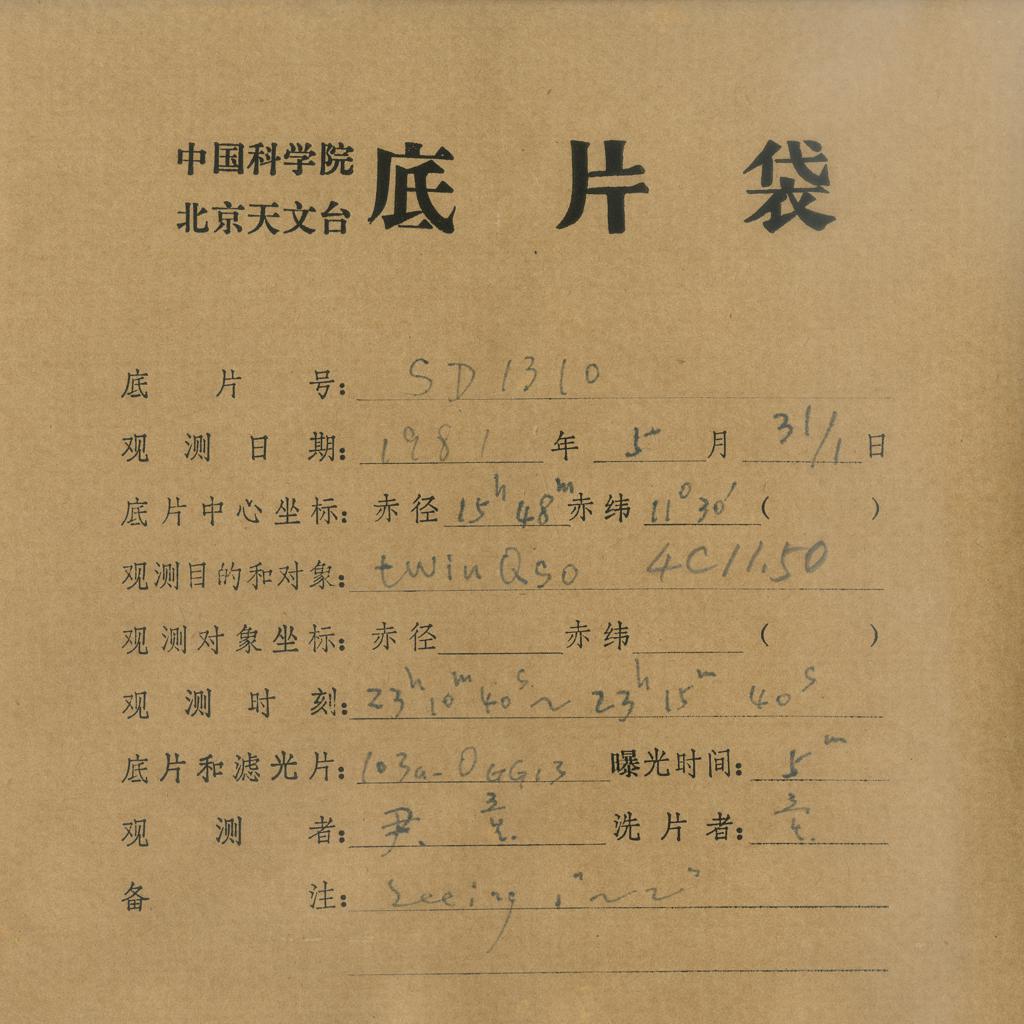 中国科学院
北京天文台
底片袋
底片号：SD1310
观测日期：1981年5月31/1日
底片中心坐标：赤径15h48m赤纬11°30′（ ）
观测目的和对象：twin QSO 4C11.50
观测对象坐标：赤径 赤纬 （ ）
观测时刻：23h10m40s～23h15m40s
底片和滤光片：103a-O GG13 曝光时间：5m
观测者：尹. 洗片者：
备注：Seeing 1"～2"